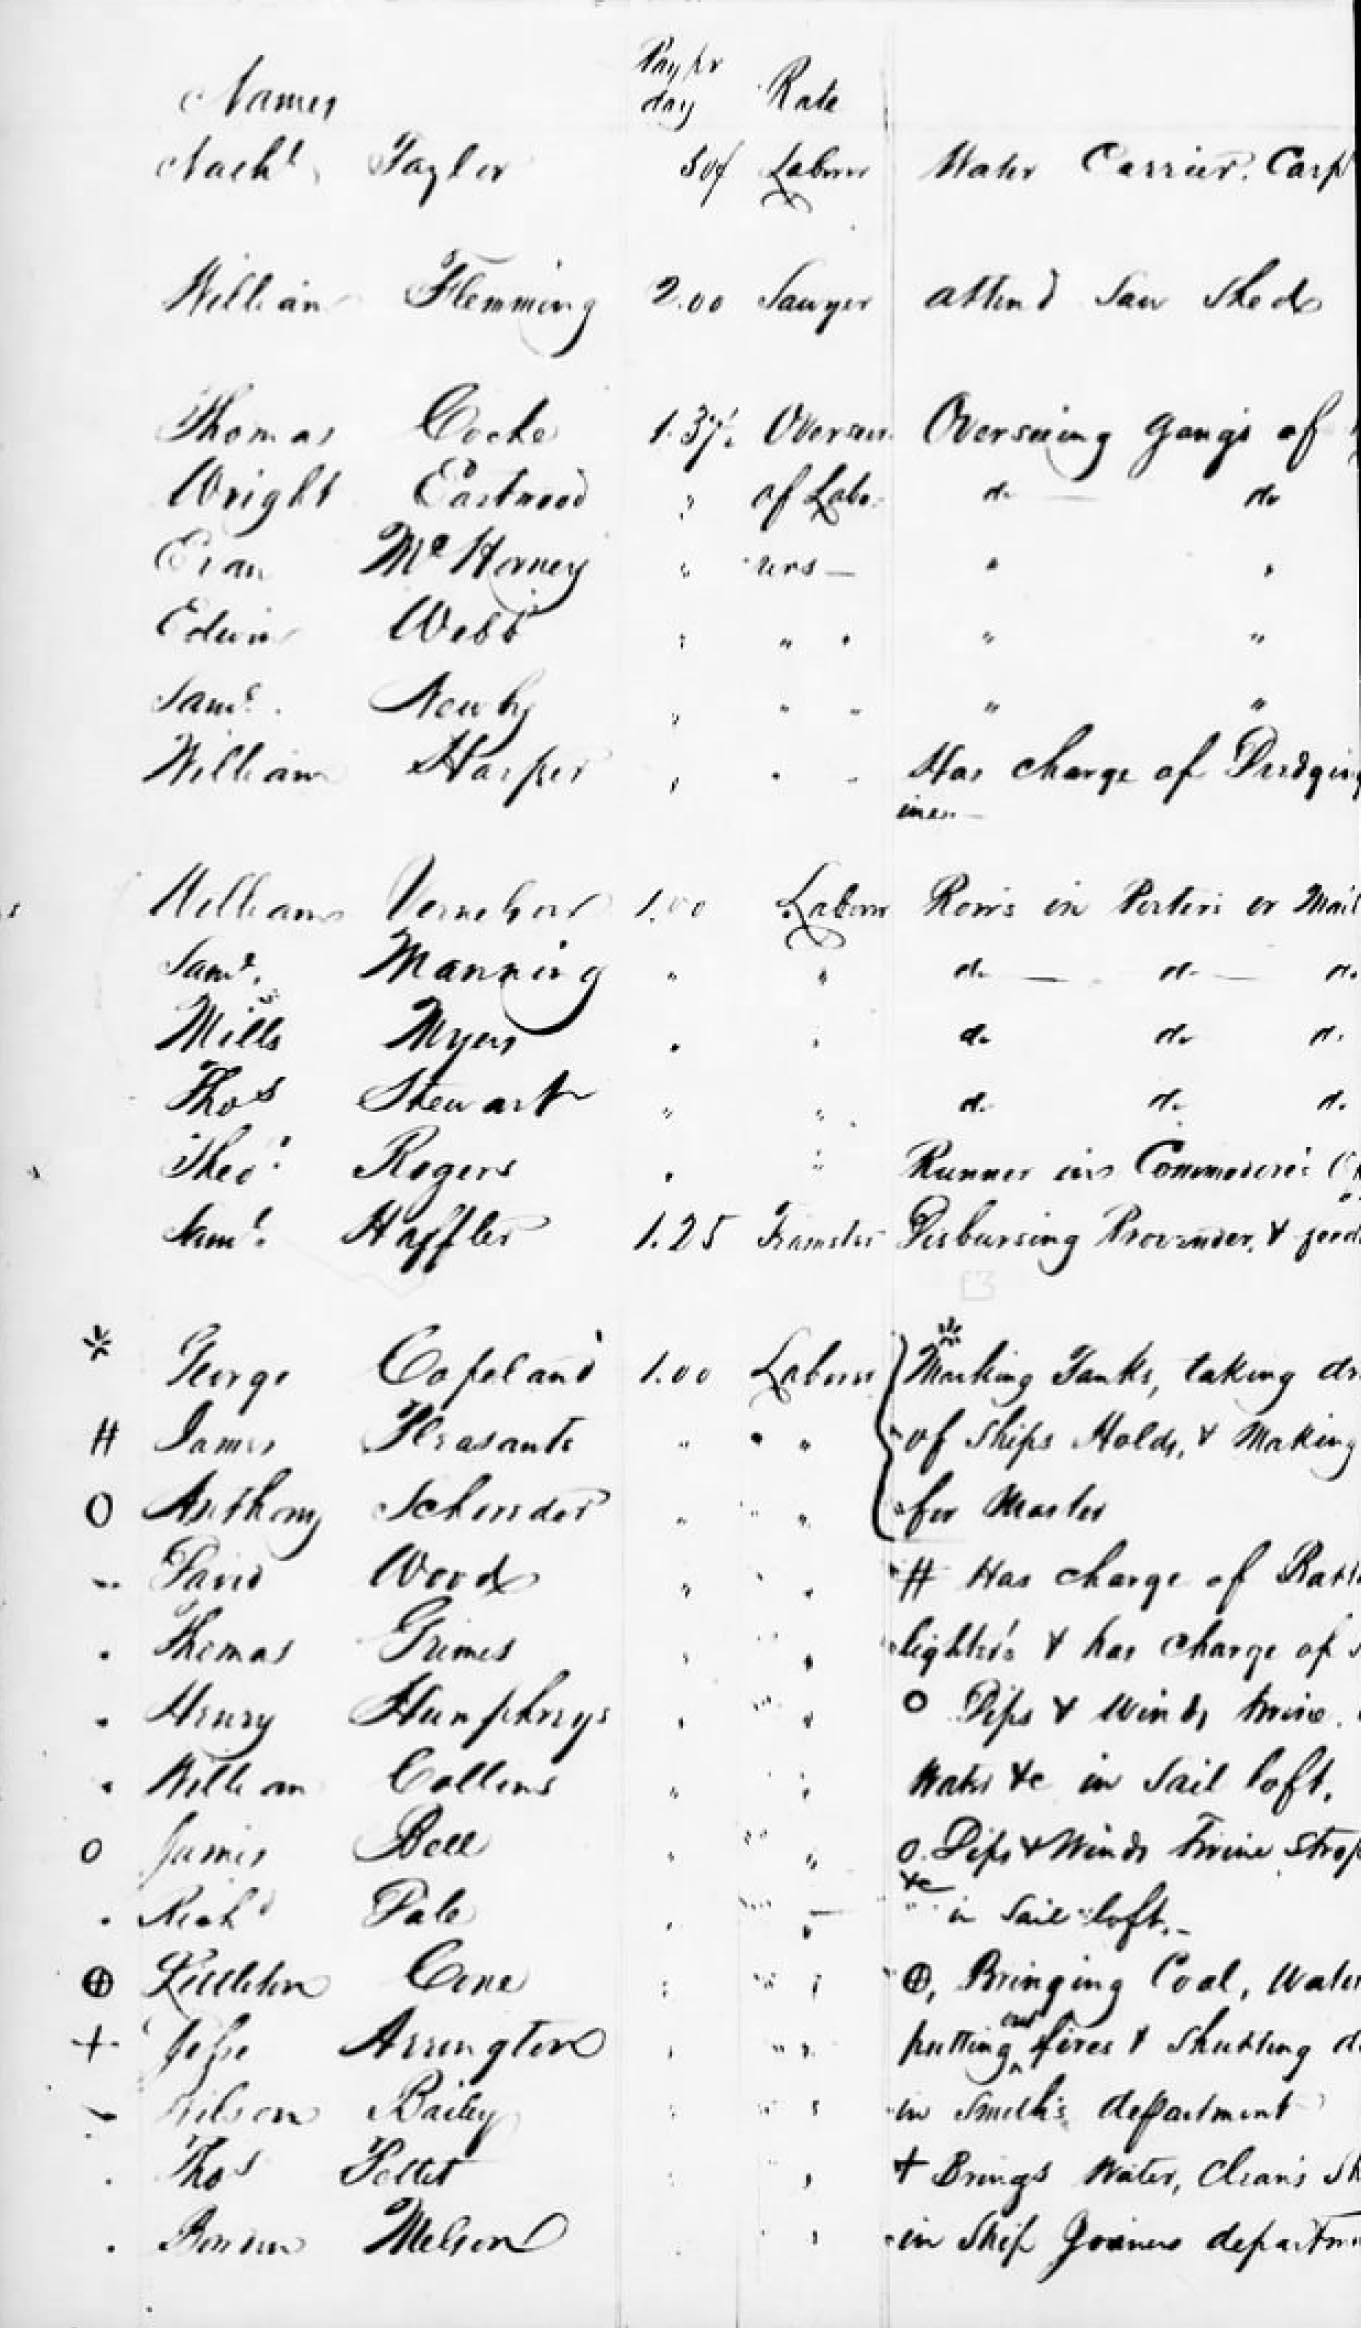 Names Pay pr day Rate
Nachl Taylor 50¢ Laborer Water Carrier. Carp
William Flemming 2.00 Sawyer attend Saw Shed
Thomas Cocke 1.37½ Overseer Overseeing gangs of
Wright Eastwood " of Labo- do do
Evan McHorney " rers — " "
Edwin Webb " " " " "
Saml. Newby " " " " "
William Harper " " " Has charge of Dredging
ines —
William 1.00 Laborer Rows in Porters or Mail
Saml. Manning " " do do do
Mills Myers " " do do do
Thos Stewart " " do do do
Theo. Rogers " " Runner in Commodore's
Saml. Haffler 1.25 Teamster Disbursing Provender, & feed
* George Copeland 1.00 Laborer * Marking Tanks, taking
# James Pleasants " " " of Ships Holds, & Making
O Anthony " " " for Master
" David Wood " " " # Has charge of
" Thomas Grimes " " " lighters & has charge of
" Henry Humphreys " " " O Dips & Winds twine.
" William Collins " " Water &c in Sail loft.
O James Bell " " " O. Dips & Winds Twine Strop
&c
" Richd Pale " " " in Sail loft. —
⊕ Littleton Cone " " " ⊕, Bringing Coal, Water
+ Jesse Arrington " " " putting out fires & Shutting
" Wilson Bailey " " " in Smith's department
" Thos Pettet " " + Brings Water, Cleans Sh
" Melson " " in Ship Joiners departm